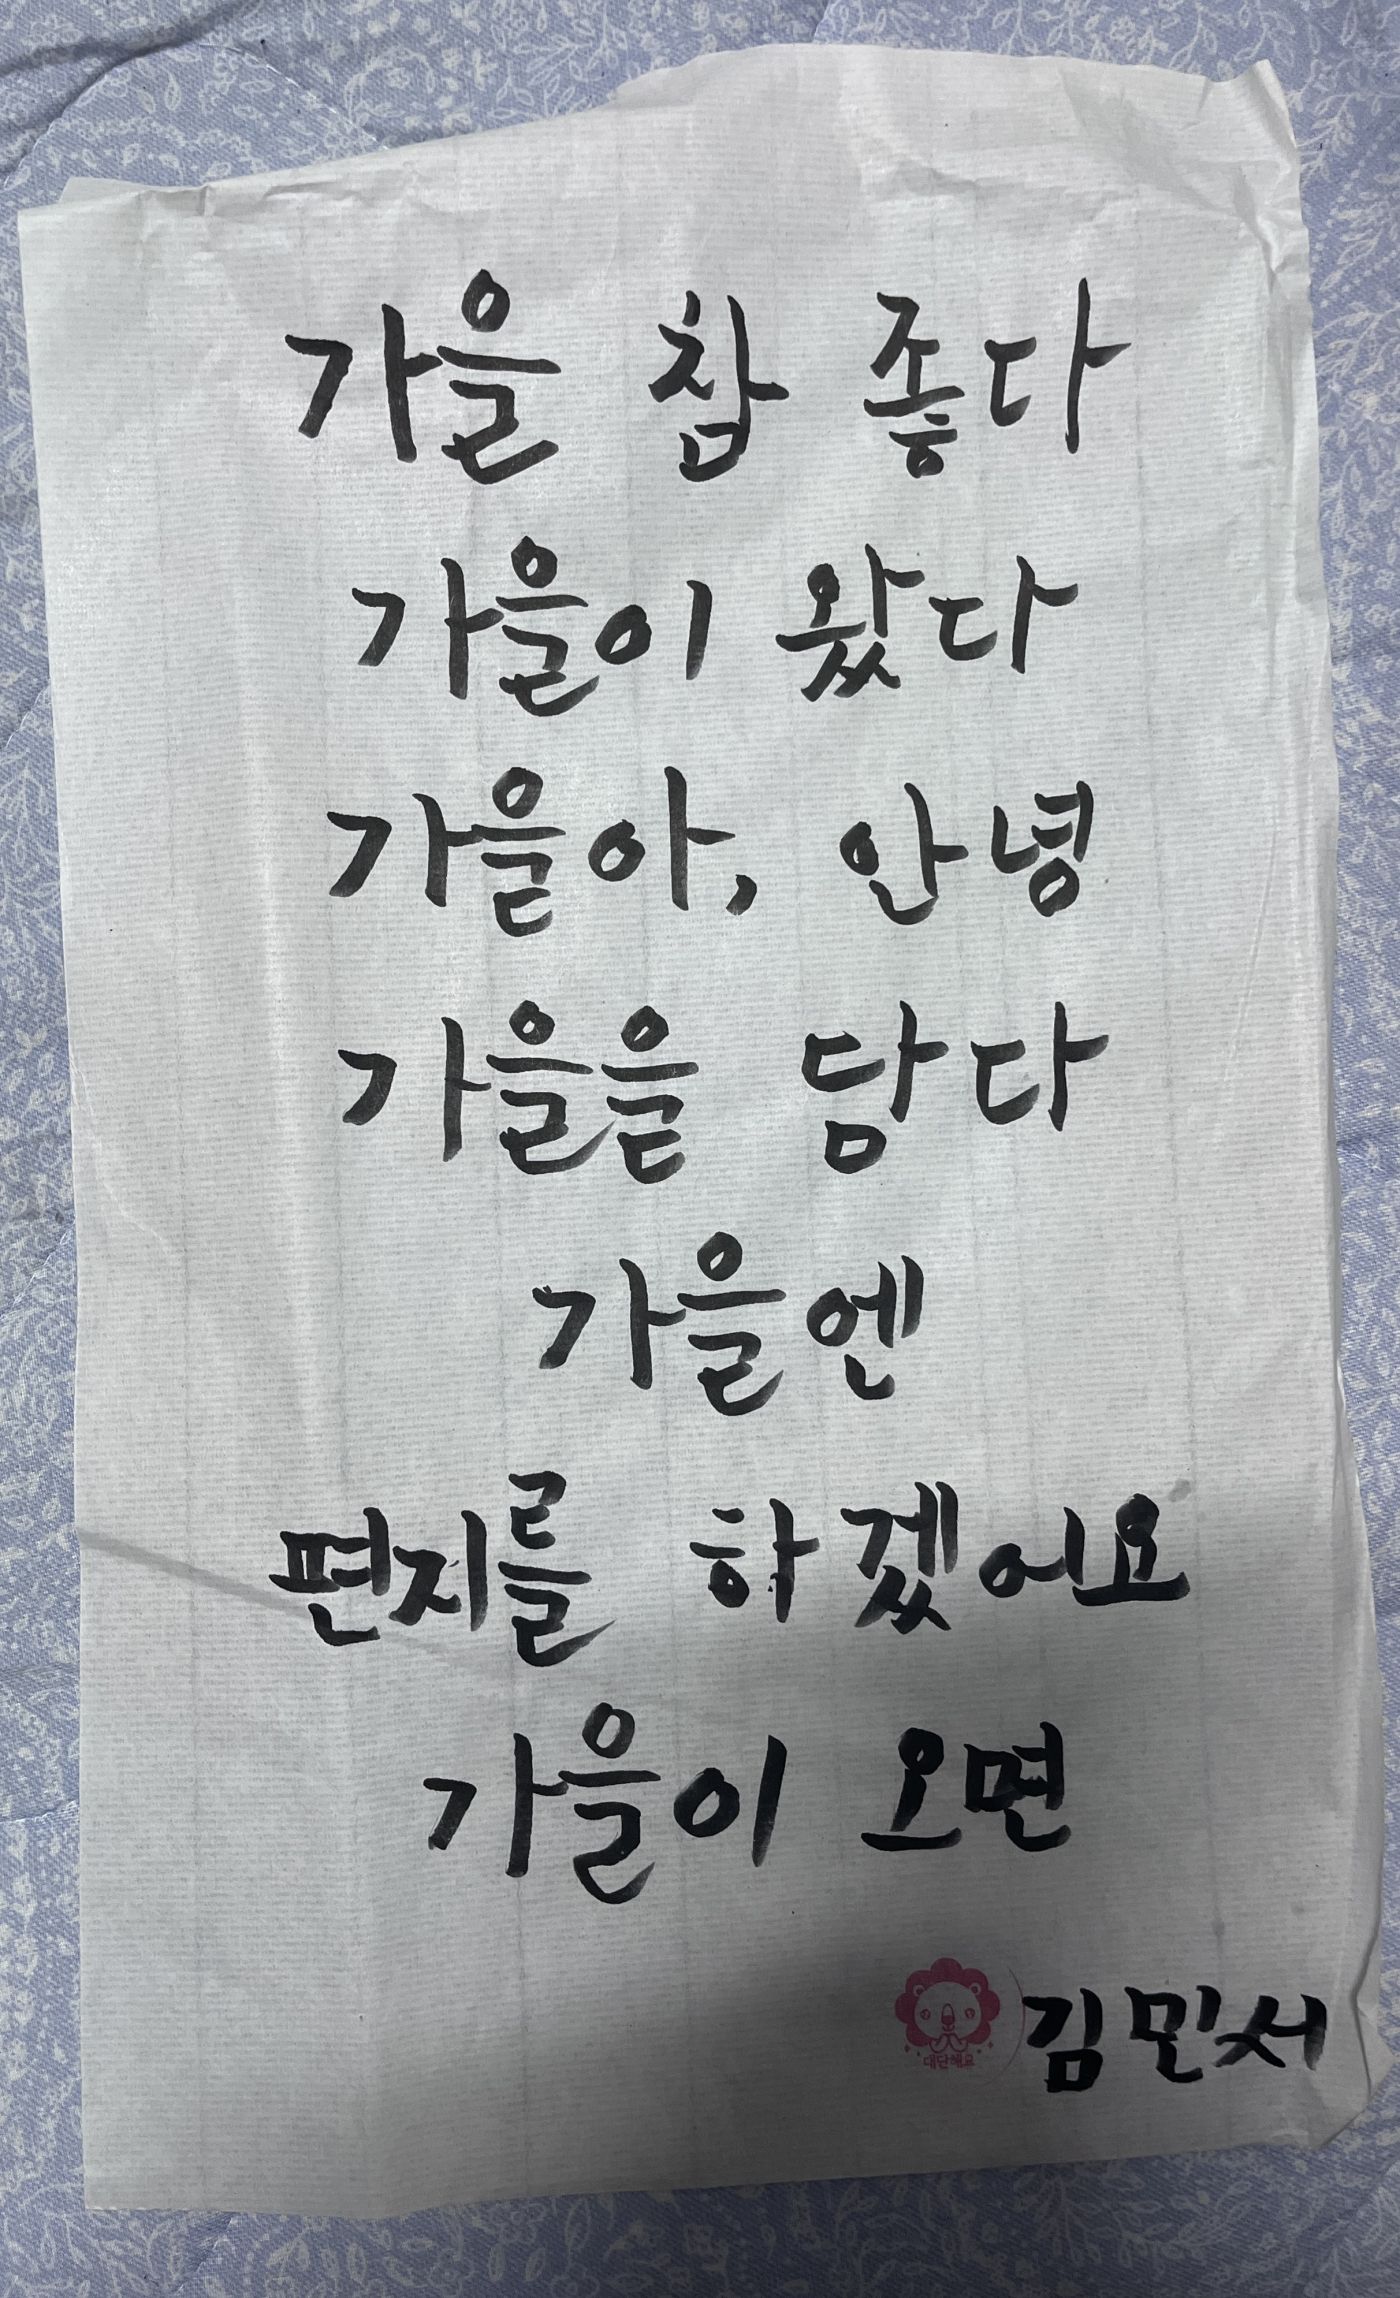 가을 참 좋다
가을이 왔다
가을아, 안녕
가을을 담다
가을엔
편지를 하겠어요
가을이 오면
대단해요
김민서